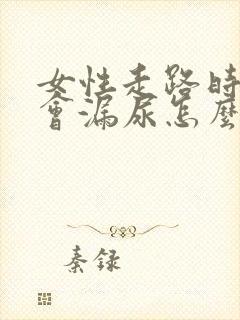 女性走路时
會漏尿怎麼
秦録